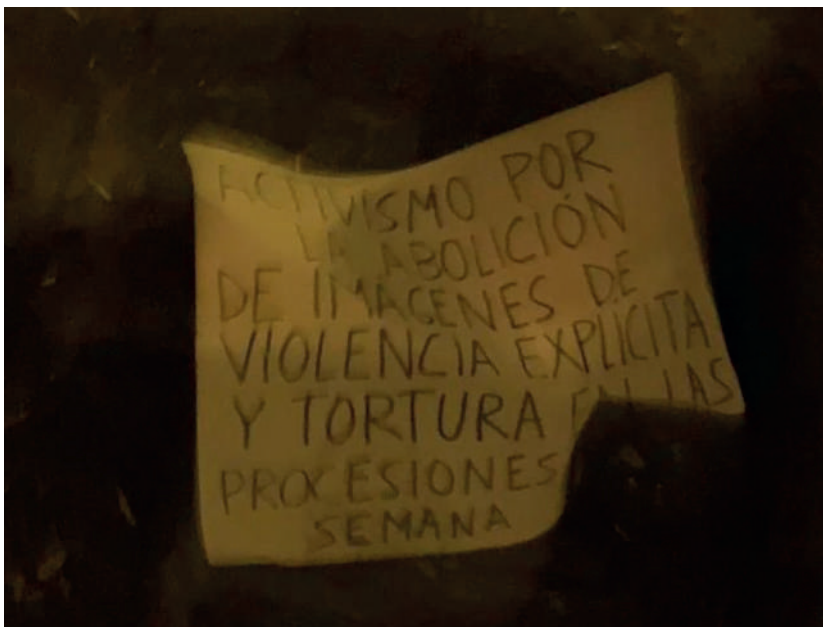 ACTIVISMO POR
LA ABOLICIÓN
DE IMAGENES DE
VIOLENCIA EXPLÍCITA
Y TORTURA EN LAS
PROCESIONES
SEMANA